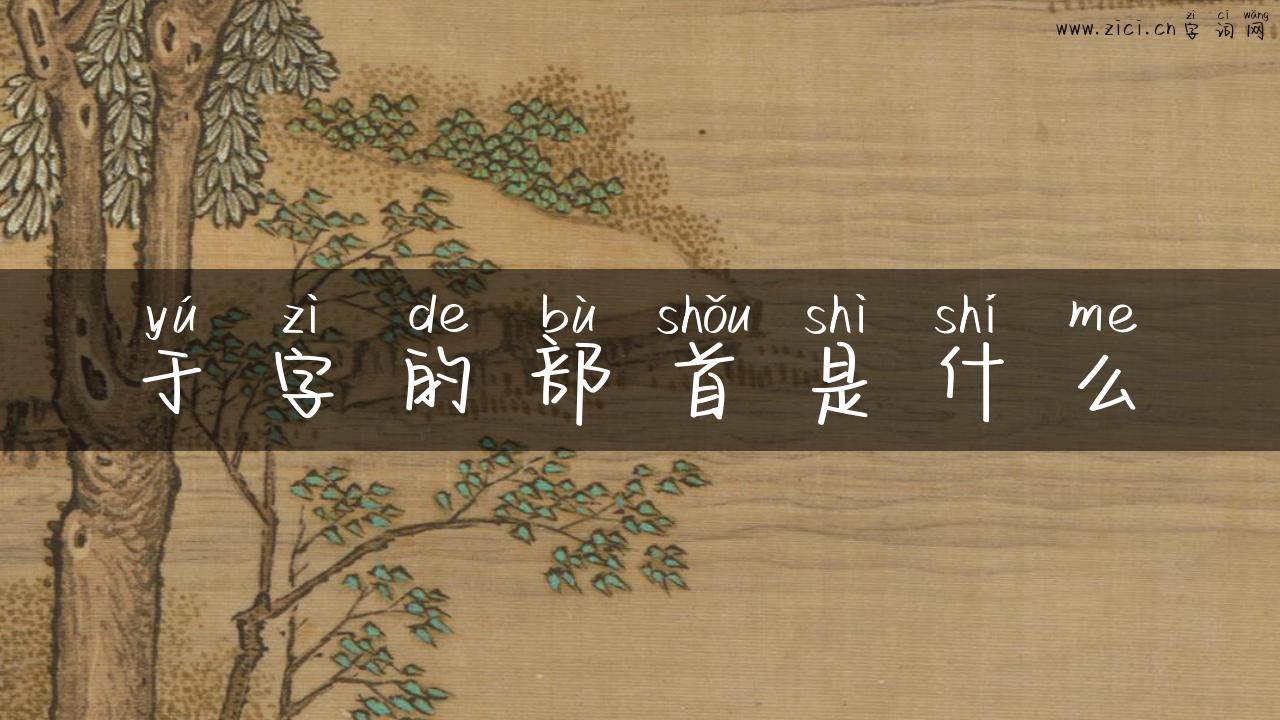 zì cí wǎng
www.zici.cn 字词网
yú zì de bù shǒu shì shí me
于字的部首是什么